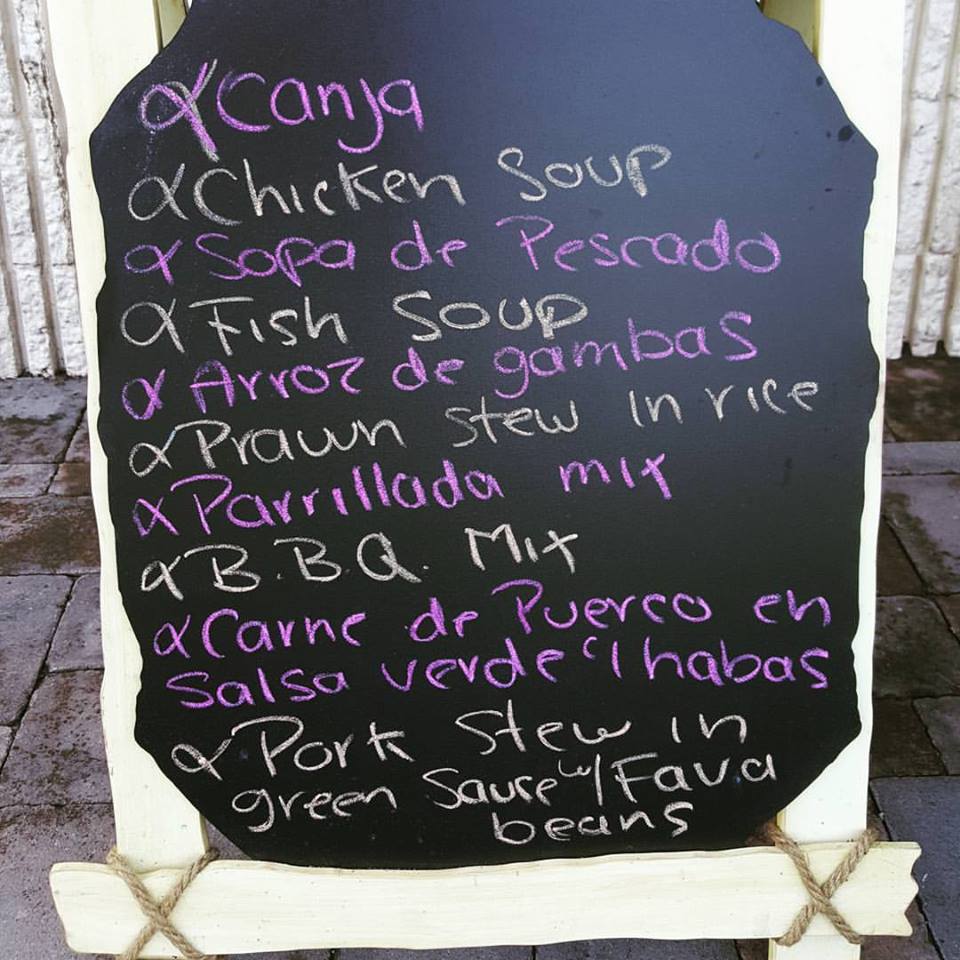 α Canja
α Chicken Soup
α Sopa de Pescado
α Fish Soup
α Arroz de gambas
α Prawn stew in rice
α Parrillada mix
α B.B.Q. Mix
α Carne de Puerco en
Salsa verde c/ habas
α Pork Stew in
green Sause w/ Fava
beans